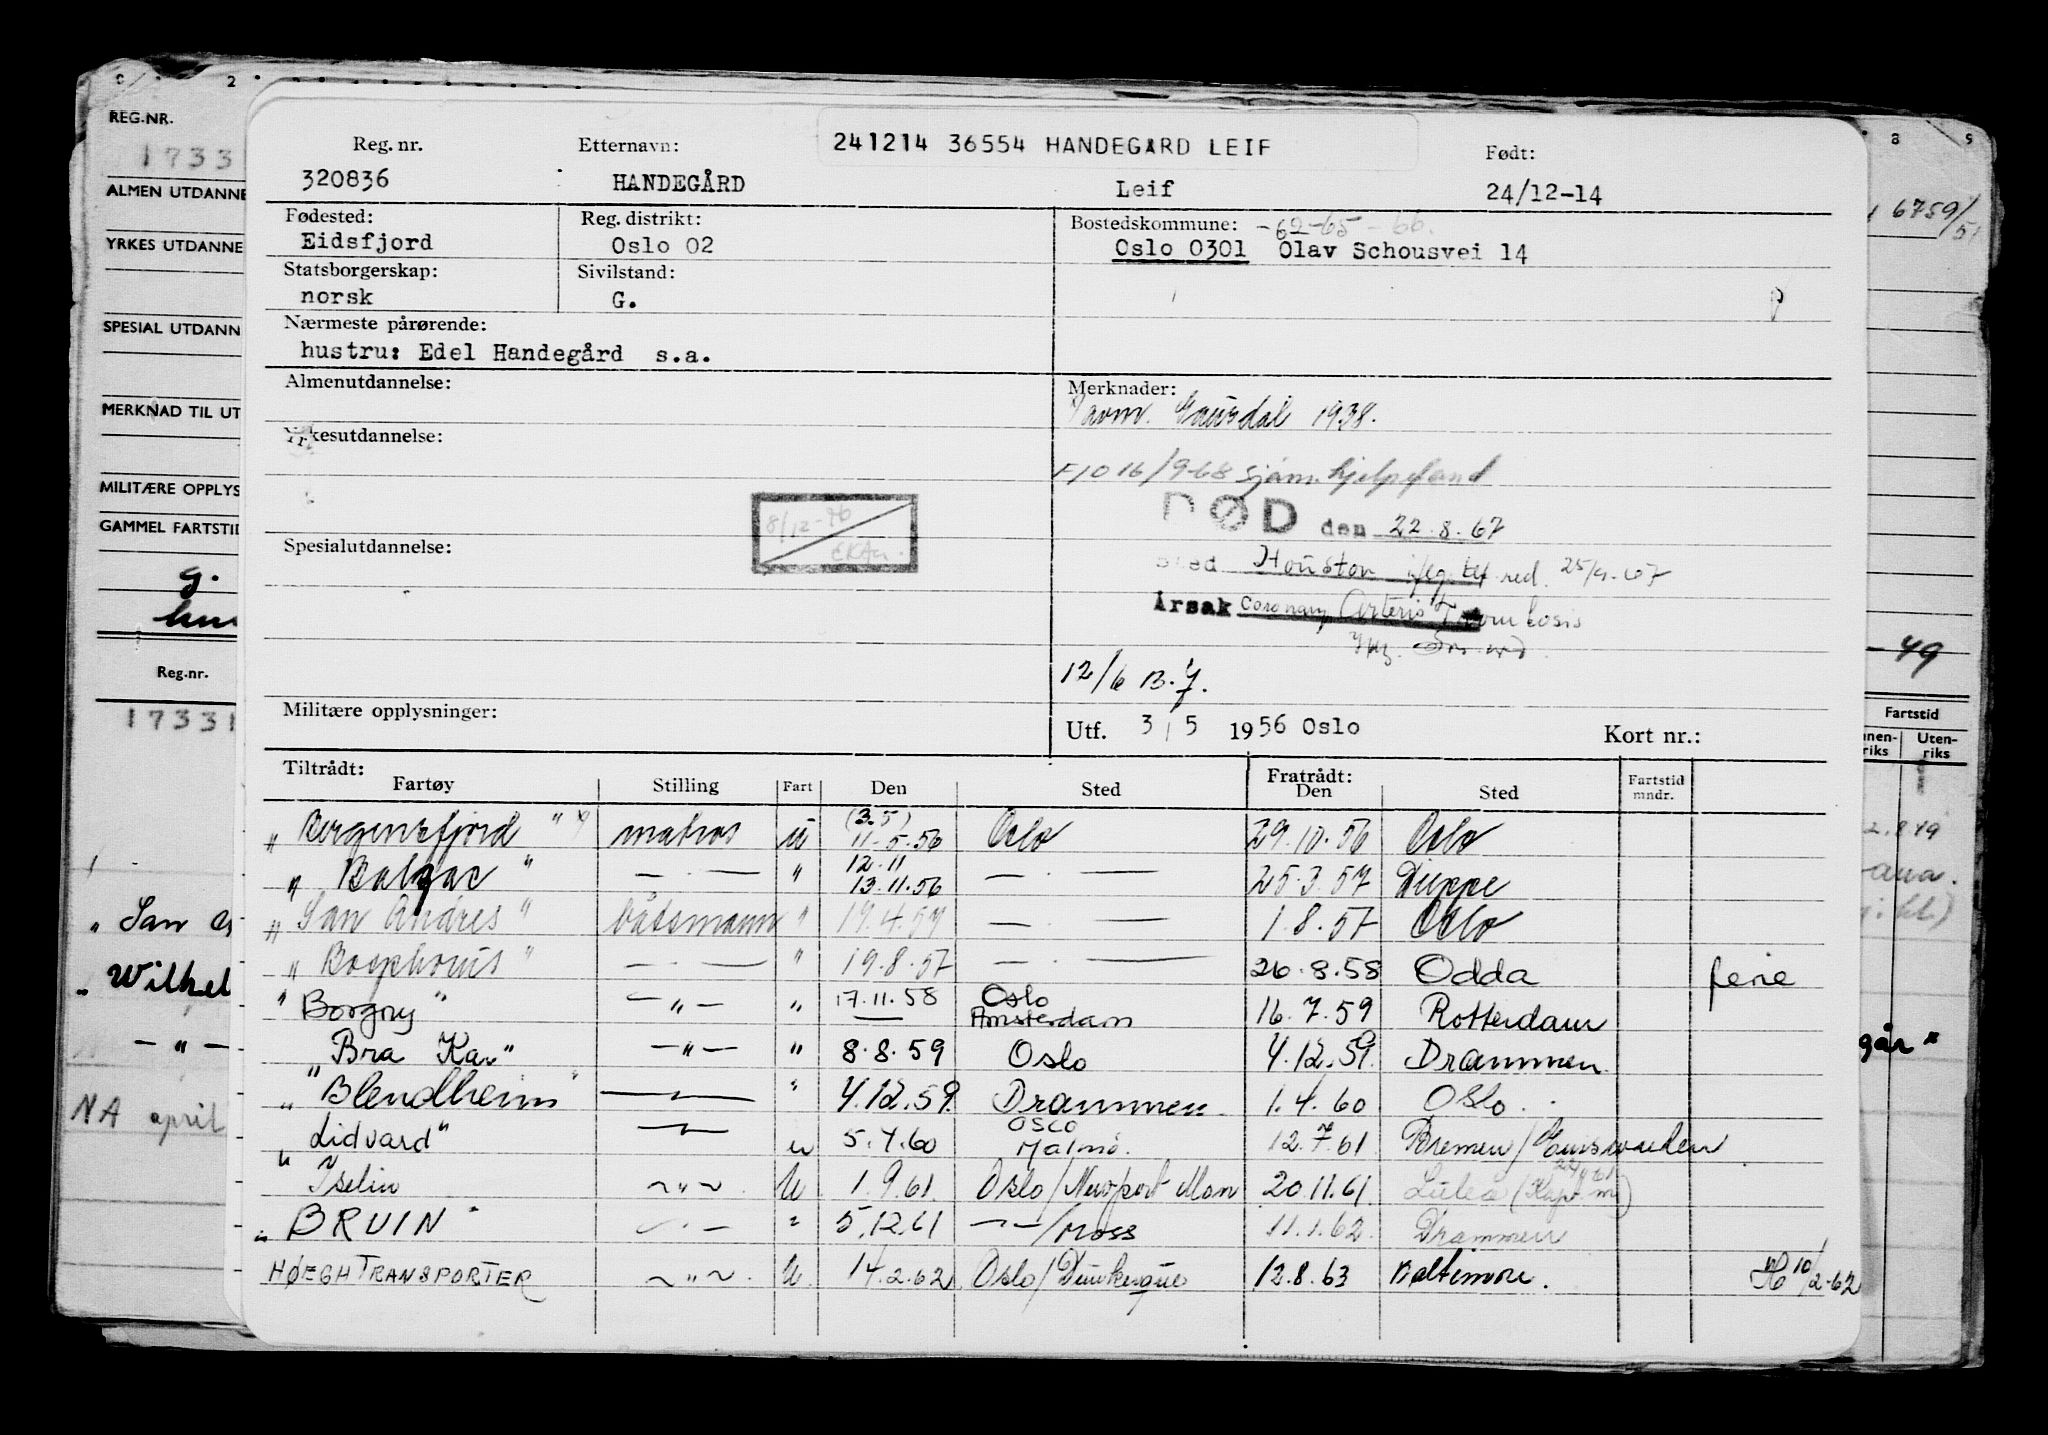 REG.NR.
1733
ALMEN UTDANNE
YRKES UTDANNE
SPESIAL UTDANN
MERKNAD TIL UT
MILITÆRE OPPLYS
GAMMEL FARTSTID
g.
Reg.nr.
17331
„ San
„ Wilhel
— „ —
NA april
241214 36554 HANDEGARD LEIF
Reg. nr. Etternavn: Født:
320836 HANDEGÅRD Leif 24/12-14
Fødested: Reg. distrikt: Bostedskommune: -62-65-66.
Eidsfjord Oslo 02 Oslo 0301 Olav Schousvei 14
Statsborgerskap: Sivilstand:
norsk G.
Nærmeste pårørende:
hustru: Edel Handegård s.a.
Almenutdannelse: Merknader:
Gausdal 1938.
Yrkesutdannelse:
16/9-68 sjøm. hjelpefond
DØD den 22.8.67
8/12-76
Spesialutdannelse:
Sted Houston red. 25/9-67
Årsak Coronary
12/6 B.J.
Militære opplysninger:
Utf. 3/5 1956 Oslo Kort nr.:
Tiltrådt: Fratrådt:
Fartøy Stilling Fart Den Sted Den Sted Fartstid mndr.
„ Bergensfjord " matros u (3.5) 11.5.56 Oslo 29.10.56 Oslo
„ Balzac " — . — " 12.11 13.11.56 — . — 25.3.57 Dieppe
„ San Andres " båtsmann " 19.4.57 — . — 1.8.57 Oslo
„ " — . — " 19.8.57 — . — 26.8.58 Odda ferie
" Borgny " — " — " 17.11.58 Oslo Amsterdam 16.7.59 Rotterdam
„ Bra Kar" — " — " 8.8.59 Oslo 4.12.59. Drammen
„ Blendheim " — " 4.12.59. Drammen. 1.4.60 Oslo.
„ Lidvard" — u 5.4.60 Oslo Malmö. 12.7.61 Bremen/
Iselin ~ " ~ U. 1.9.61. Oslo/Newport Mon 20.11.61. Luleå
„ BRUIN " — . — " 5.12.61 — " —/Moss 11.1.62. Drammen
HØEGH TRANSPORTER ~ " ~. U. 14.2.62 Oslo/Dunkerque 12.8.63 Baltimore. 10/2-62
8 9
6759/51
-49
Fartstid
Innen-riks Uten-riks
går"